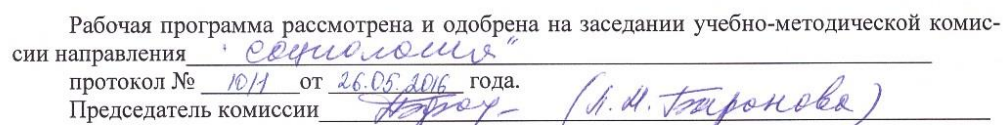 Рабочая программа рассмотрена и одобрена на заседании учебно-методической комис-
сии направления "социология"
протокол № 10/1 от 26.05.2016 года.
Председатель комиссии